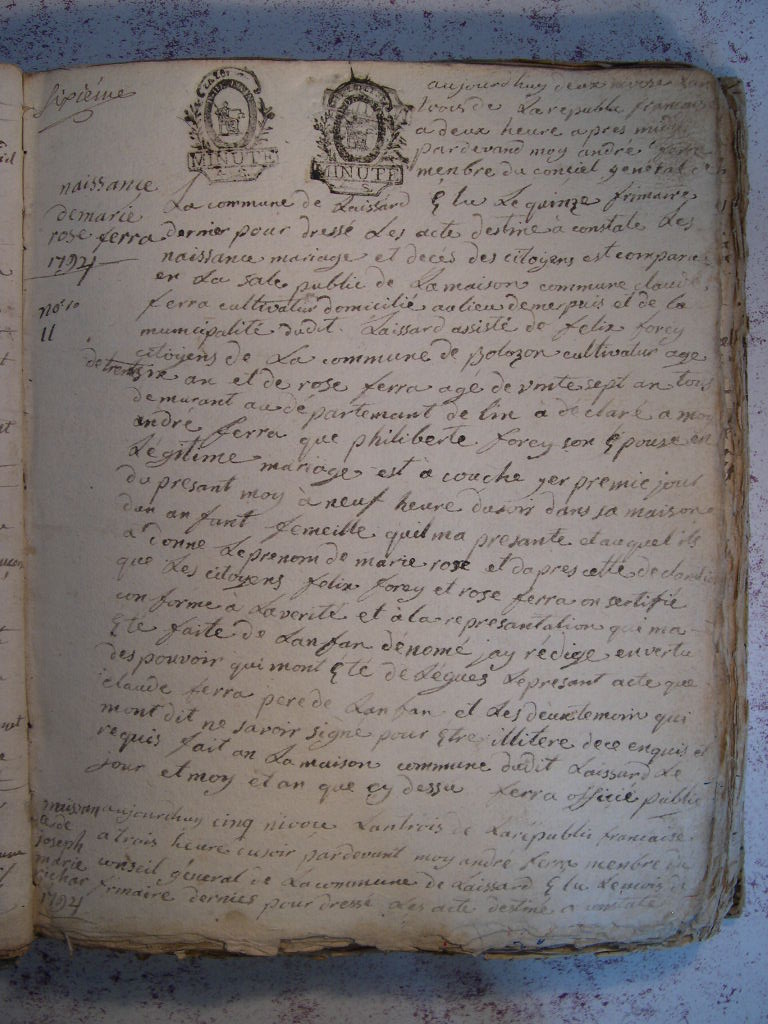 sixiéme
MINUTE
MINUTE
naissance
de marie
rose ferra
1794
no 10
11
aujourdhuy deux nivose lan
trois de La republi francaise
a deux heure apres midy
par devand moy andré ferra
menbre du conseil general de
La commune de Laissard Elu Le quinze frimaire
dernier pour dressé Les acte destiné à constaté Les
naissance mariage et decés des citoyens est comparu
en La sale public de La maison commune claude
ferra cultivatur domicilié au lieu de merpuis et de la
municipalité dudit Laissard assisté de felix forey
citoyens de La commune de Bolozon cultivatur age
de trente six an et de rose ferra agé de vinte sept an tous
demurant au département de Lin à déclaré a moy
andré ferra que philiberte forey son Epouse en
Légitime mariage est à couche yer premie jour
du presant moy à neuf heure du soir dans sa maison
dun anfant femeille quil ma presante et auquel ils
a donne Le prenom de marie rose et dapres cette declaration
que Les citoyens felix forey et rose ferra on sertifié
conforme à La verité et à la representation qui ma
Eté faite de Lanfan dénomé jay redigé en vertu
des pouvoir qui mont Eté delégués Le presant acte que
claude ferra pere de Lanfan et Les deux temoin qui
mont dit ne savoir signé pour Etre illitere de ce enquis et
requis fait an La maison commune dudit Laissard Le
jour et moy et an que cy dessu ferra officié public
naissan
ce de
joseph
marie
1794
aujourdhuy cinq nivose Lan trois de La republi francaise
a trois heure du soir par devant moy andré ferra menbre du
conseil général de La commune de Laissard Elu Le mois de
frimaire dernies pour dressé Les acte destiné a constaté